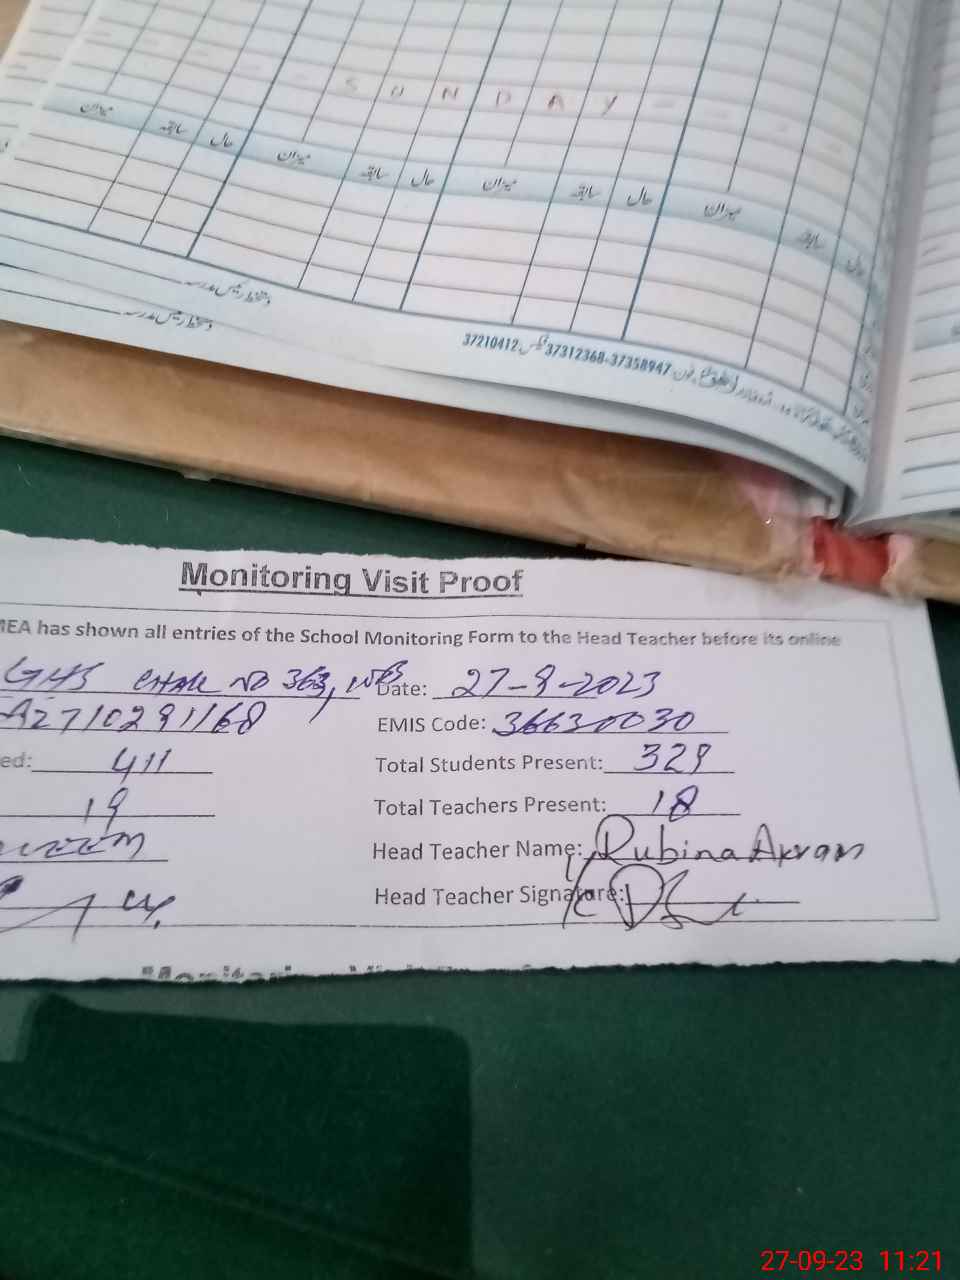 S U N D A Y
میزان سابقہ حال میزان سابقہ حال میزان سابقہ حال میزان سابقہ حال
دستخط رئیس مدرسہ
دستخط رئیس مدرسہ
37210412 فیکس 37312368-37358947 فون
Monitoring Visit Proof
MEA has shown all entries of the School Monitoring Form to the Head Teacher before its online
GHS CHAK NO 363, WB Date: 27-9-2023
A2710291168 EMIS Code: 36630030
ed: 411 Total Students Present: 329
19 Total Teachers Present: 18
Head Teacher Name: Rubina Akram
Head Teacher Signature:
27-09-23 11:21